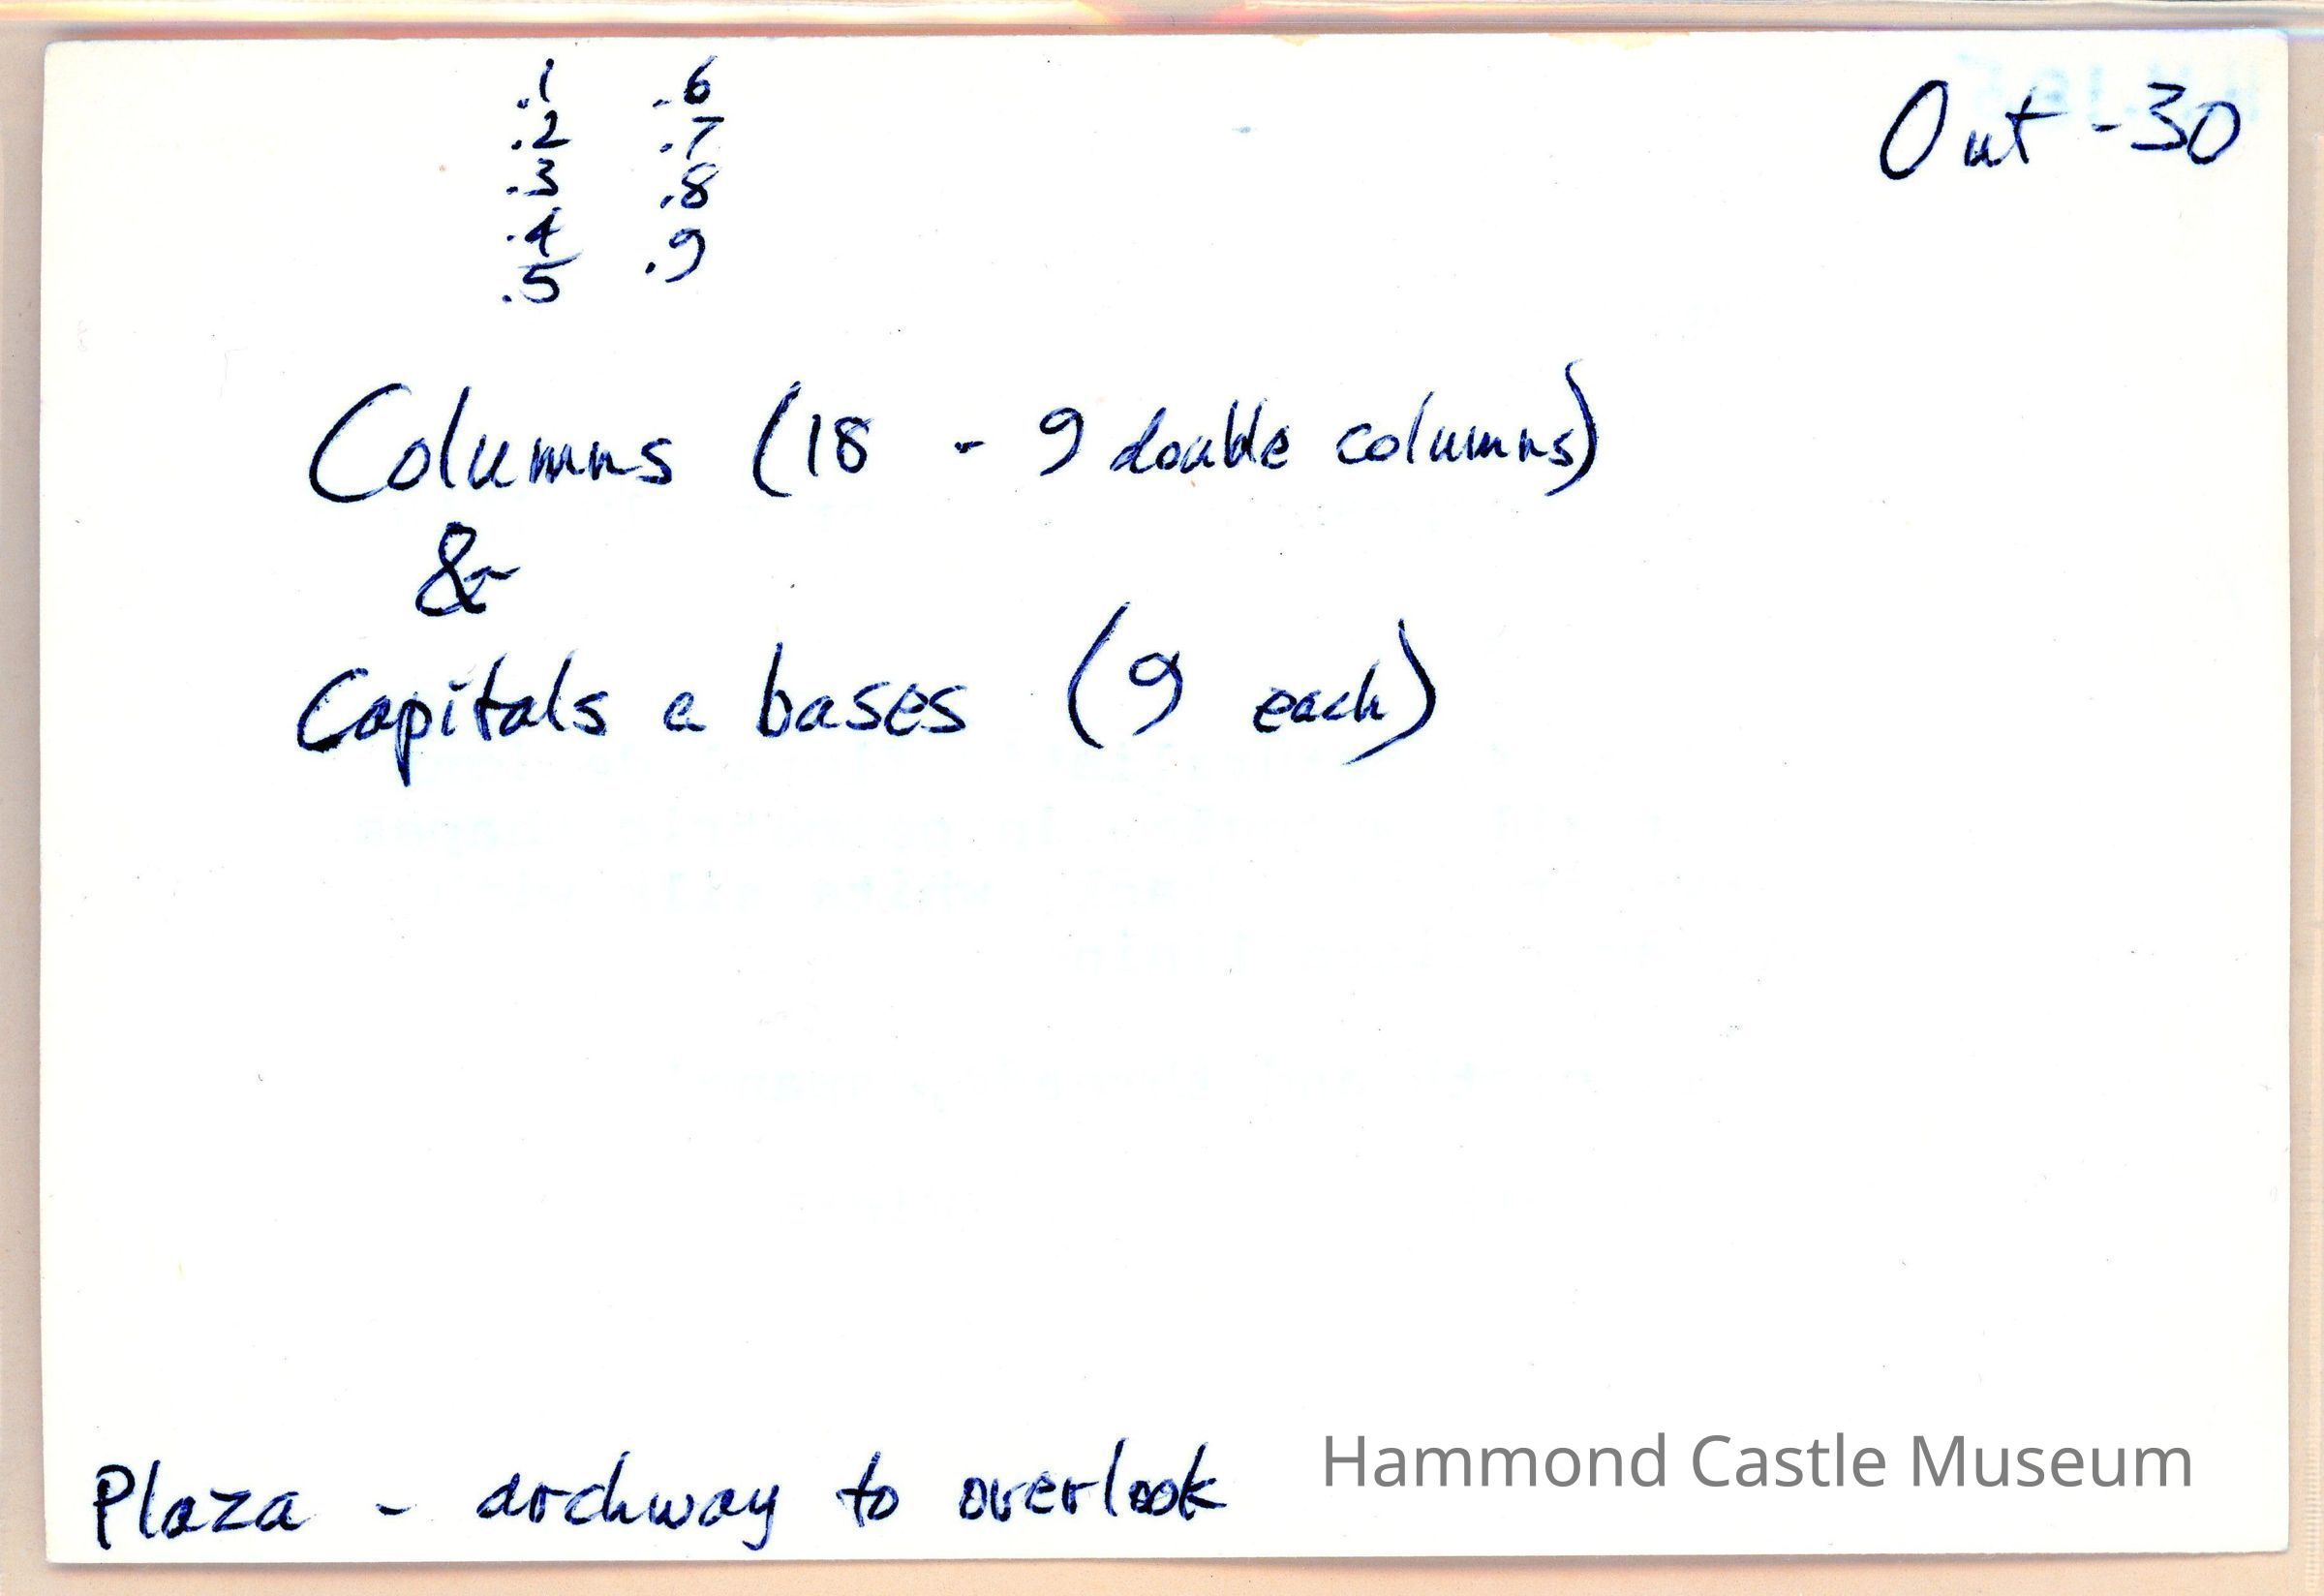 .1 .6
.2 .7
.3 .8
.4 .9
.5
Out - 30
Columns (18 - 9 double columns)
&
Capitals e bases (9 each)
Plaza - archway to overlook
Hammond Castle Museum